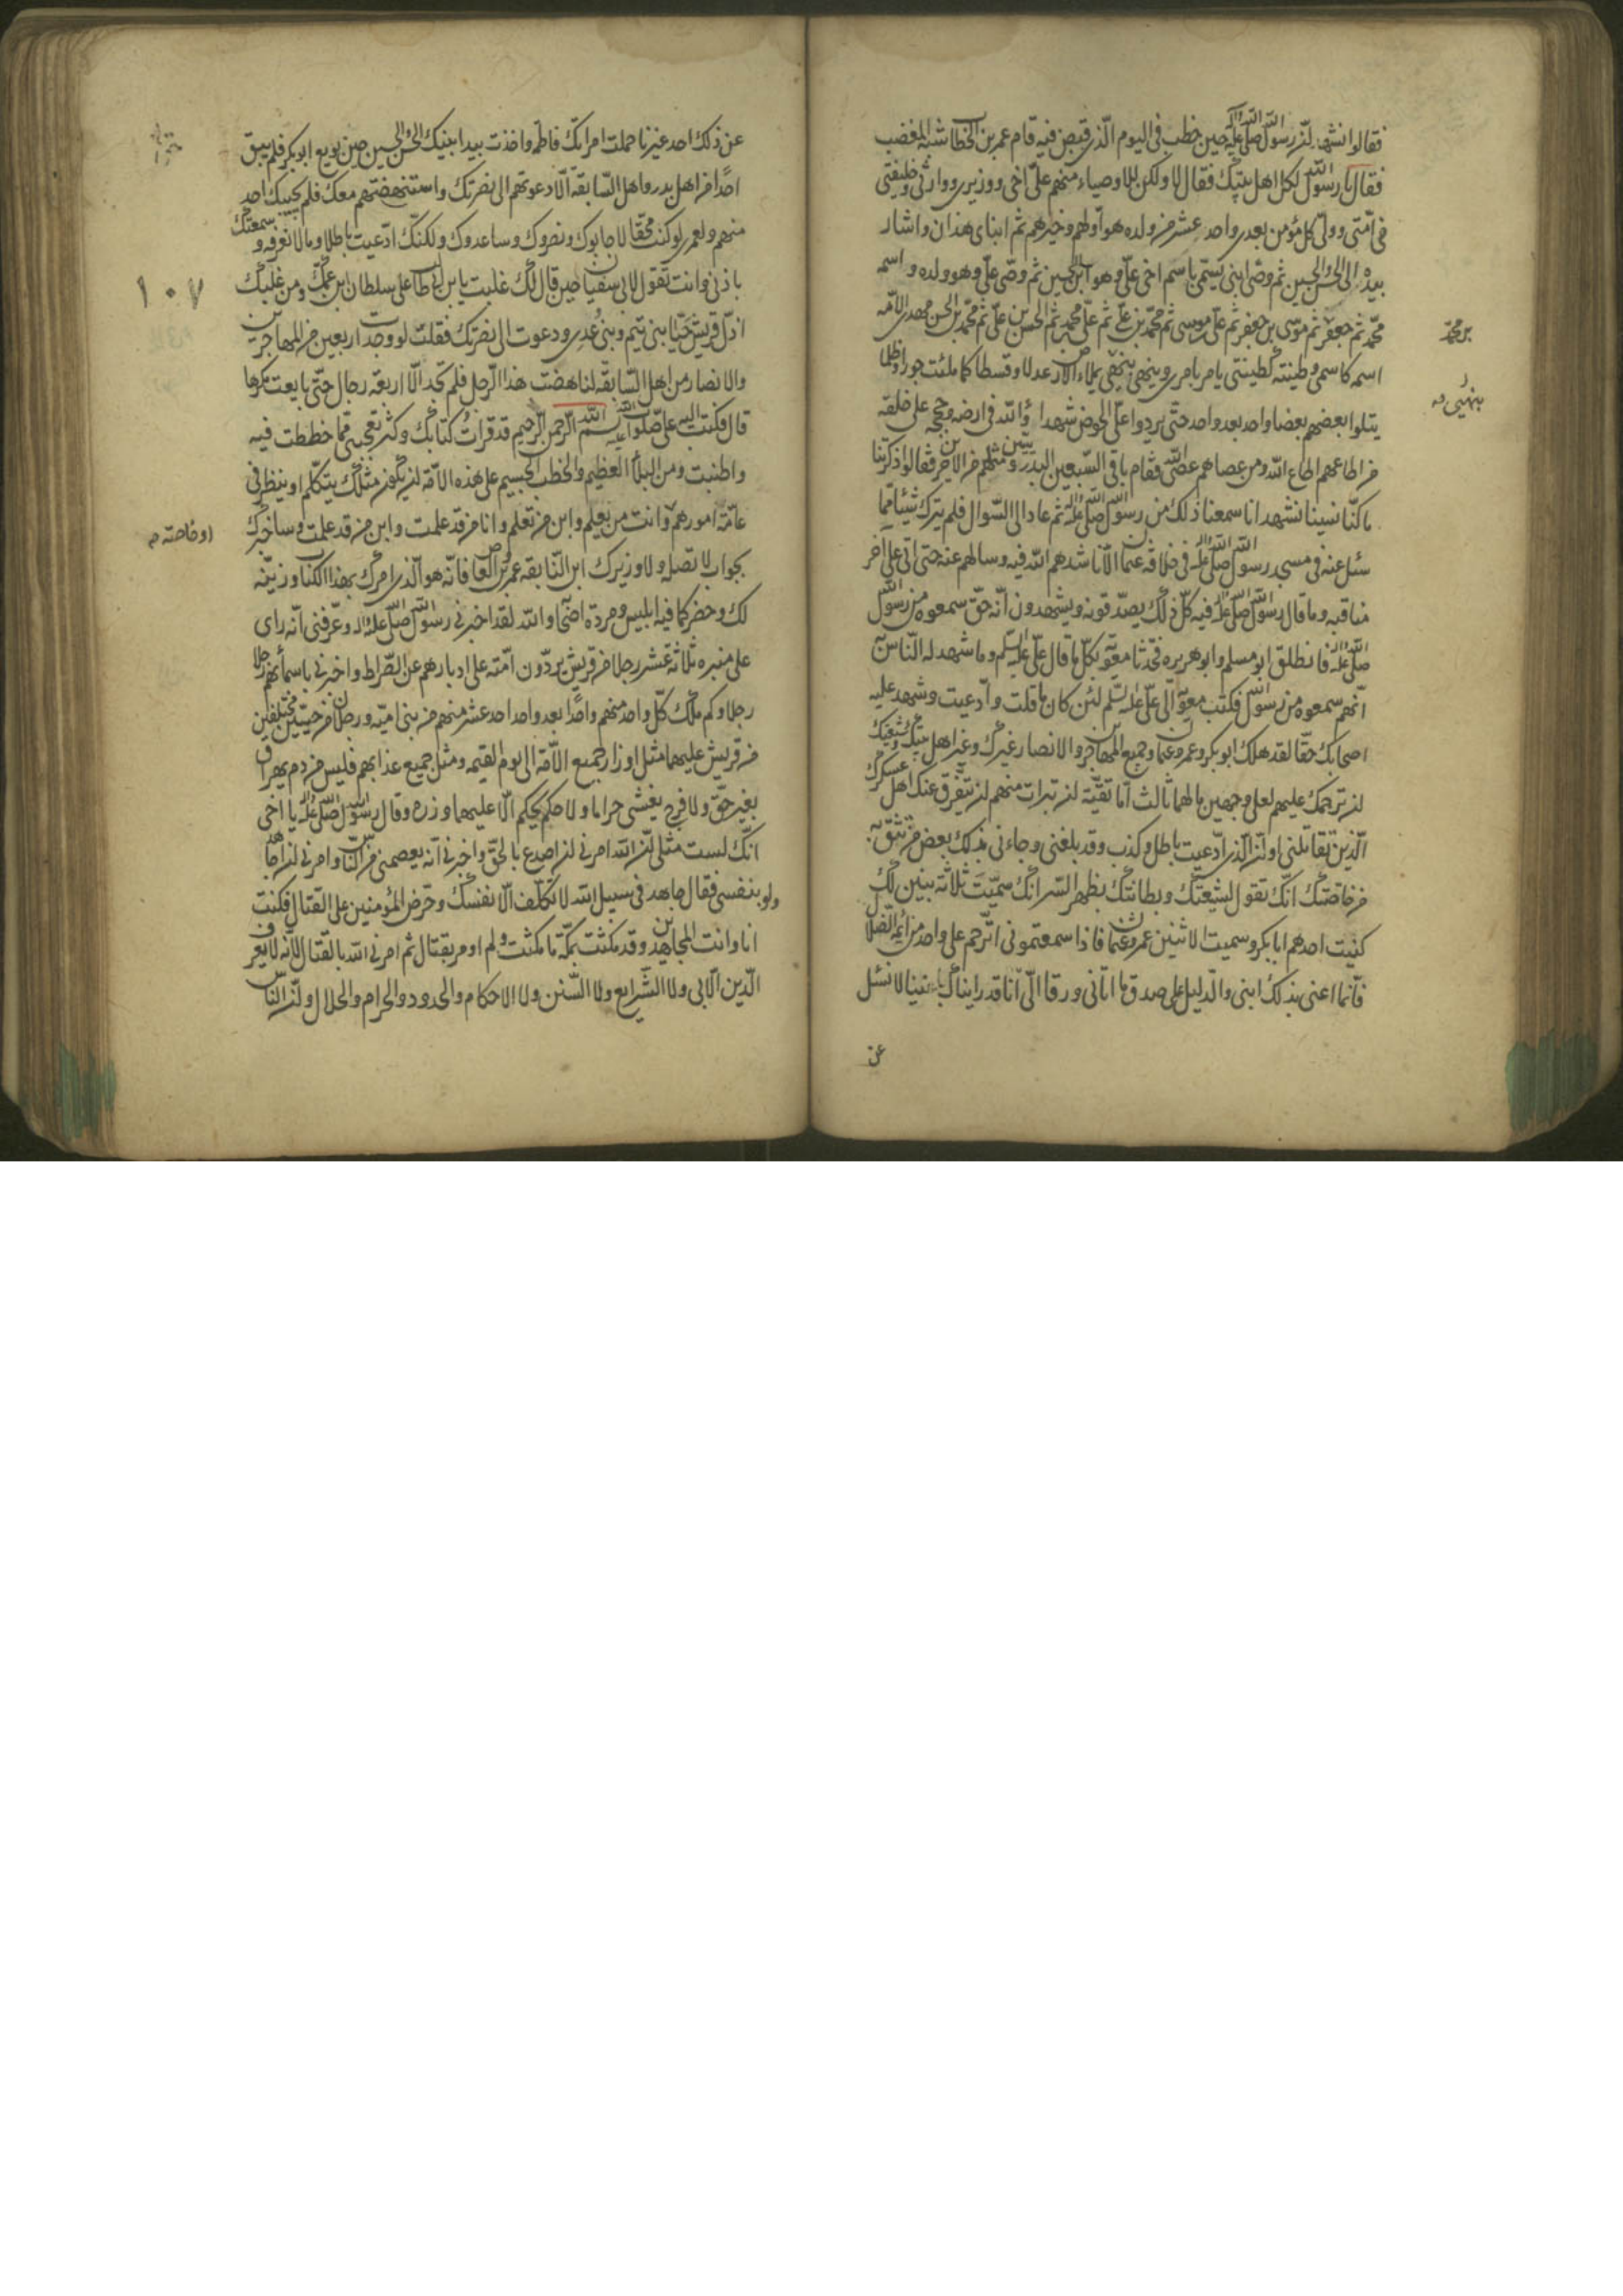 فقالوا نشهد لن رسول الله صلى الله عليه وآله حين خطب في اليوم الذي قبض فيه قام عمر بن الخطاب شبه المغضب
فقال يا رسول الله لكل اهل بيتك فقال لا ولكن للاوصياء منهم علي اخي ووزيري ووارثي وخليفتي
في امتي وولي كل مؤمن بعدي واحد عشر من ولده هو اولهم وخيرهم ثم ابناي هذان واشار
بيده الى الحسن والحسين ثم وصي ابني يسمى باسم اخي علي وهو ابن الحسين ثم وصي علي وهو ولده واسمه
محمد ثم جعفر ثم موسى بن جعفر ثم علي بن موسى ثم محمد بن علي ثم علي بن محمد ثم الحسن بن علي ثم محمد بن الحسن مهدي الامة
بن محمد
اسمه كاسمي وطينته كطينتي يامر بامري وينهى بنهيي يملاء الارض عدلا وقسطا كما ملئت جورا وظلما
بنهيي
يتلوا بعضهم بعضا واحد بعد واحد حتى يردوا علي الحوض شهداء الله في ارضه وحججه على خلقه
من اطاعهم اطاع الله ومن عصاهم عصى الله فقام باقي السبعين البدريين ومثلهم من الاخرين فقالوا ذكرتنا
ما كنا نسينا نشهد انا سمعنا ذلك من رسول الله صلى الله عليه ثم عاد الى السوال فلم يترك شيئا مما
سئل عنه في مسجد رسول الله صلى الله عليه في خلافة عثمان الا ناشدهم الله فيه وسالهم عنه حتى اتى على اخر
مناقبه وما قال رسول الله صلى الله عليه فيه كل ذلك يصدقونه ويشهدون انه حق سمعوه من رسول الله
صلى الله عليه فانطلق ابو مسلم وابو هريره فحدثا معوية بكل ما قال علي عليه السلم وما شهد له الناس
انهم سمعوه من رسول الله فكتب معوية الى علي عليه السلم لئن كان ما قلت وادعيت وشهد عليه
اصحابك حقا لقد هلك ابو بكر وعمر وعثمان وجميع المهاجرين والانصار غيرك وغير اهل بيتك وشيعتك
لن ترحمك عليهم لعلى وجهين مالهما ثالث اما تقية لن تبرات منهم لن يتفرق عنك اهل عسكرك
الذين تقاتلني او لن الذي ادعيت باطل وكذب وقد بلغني وجاءني بذلك بعض من تثق به
من خاصتك انك تقول لشيعتك وبطانتك بظهر السر انك سميت ثلاثة بنين لك
كنيت احدهم ابا بكر وسميت الاثنين عمر وعثمان فاذا سمعتموني اترحم على واحد من ائمة الضلال
فانما اعني بذلك ابني والدليل على صدق ما اتاني ورقا الي انا قد رايناك باعيننا لا نسئل
عن
عن ذلك احد غيرنا حملت امراتك فاطمه واخذت بيد ابنيك الحسن والحسين حين بويع ابو بكر فلم يبق
احدا من اهل بدر واهل السابقة الا دعوتهم الى نصرتك واستنهضتهم معك فلم يجيبك احد
منهم ولعمري لو كنت محقا لاجابوك ونصروك وساعدوك ولكنك ادعيت باطلا وما لا نعرفه وسمعتك
باذني وانت تقول لابي سفيان حين قال لك غلبت يابن ابي طالب على سلطان ابن عمك ومن غلبك
١٠٧
اذل قريش حيا بني تيم وبني عدي ودعوت الى نصرتك فقلت لو وجدت اربعين من المهاجرين
والانصار من اهل السابقة لناهضت هذا الرجل فلم تجد الا اربعة رجال حتى بايعت مكرها
قال فكتب اليه علي صلوات الله عليه بسم الله الرحمن الرحيم قد قرات كتابك وكثر تعجبي مما خططت فيه
واطنبت ومن البلاء العظيم والخطب الجسيم على هذه الامة لن يكون مثلك يتكلم او ينظر في
عامة امورهم وانت من تعلم وابن من تعلم وانا من قد علمت وابن من قد علمت وساخبرك
او خاصته
بجواب لا تصله ولا وزيرك ابن النابغه عمرو بن العاص فانه هو الذي امرك بهذا الكتاب وزينه
لك وحضركما فيه ابليس ومردة اصحابه والله لقد اخبرني رسول الله صلى الله عليه وآله وعرفني انه راى
على منبره ثلاثة عشر رجلا من قريش يردون امته على ادبارهم عن الصراط واخبرني باسمائهم رجلا
رجلا وكم يملك كل واحد منهم واحدا بعد واحد احد عشر منهم من بني اميه ورجلان من حيين مختلفين
من قريش عليهما مثل اوزار جميع الامة الى يوم القيمه ومثل جميع عذابهم فليس من دم يهراق
بغير حق ولا فرج يغشى حراما ولا حكم يحكم الا عليهما وزره وقال رسول الله صلى الله عليه يا اخي
انك لست مثلي لن الله امرني لن اصدع بالحق واخبرني انه يعصمني من الناس وامرني لن اجاهد
ولو بنفسي فقال جاهد في سبيل الله لا تكلف الا نفسك وحرض المؤمنين على القتال فكنت
انا وانت المجاهدين وقد مكثت بمكة ما مكثت ولم اومر بقتال ثم امرني الله بالقتال لانه لا يعرف
الدين الا بي ولا الشرايع ولا السنن ولا الاحكام والحدود والحرام والحلال ولن الناس